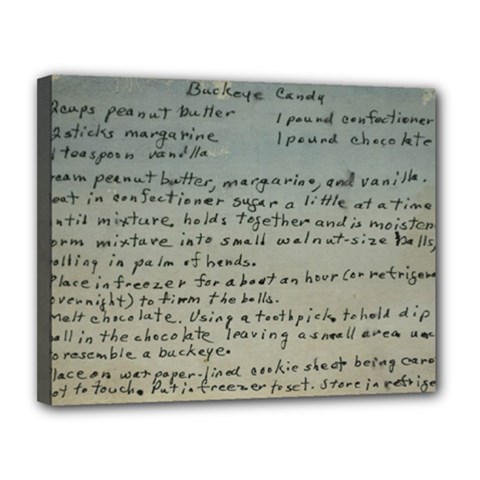 Buckeye Candy
2cups peanut butter 1 pound confectioner
2 sticks margarine 1 pound chocolate
1 teaspoon vanilla
ream peanut butter, margarine, and vanilla.
eat in confectioner sugar a little at a time
ntil mixture holds together and is moisten
orm mixture into small walnut-size balls,
olling in palm of hends.
Place in freezer for about an hour (or refrigera
overnight) to firm the balls.
Melt chocolate. Using a toothpick to hold dip
all in the chocolate leaving a small area unc
o resemble a buckeye.
lace on wax paper-lined cookie sheet being care
ot to touch. Put in freezer to set. Store in refrige